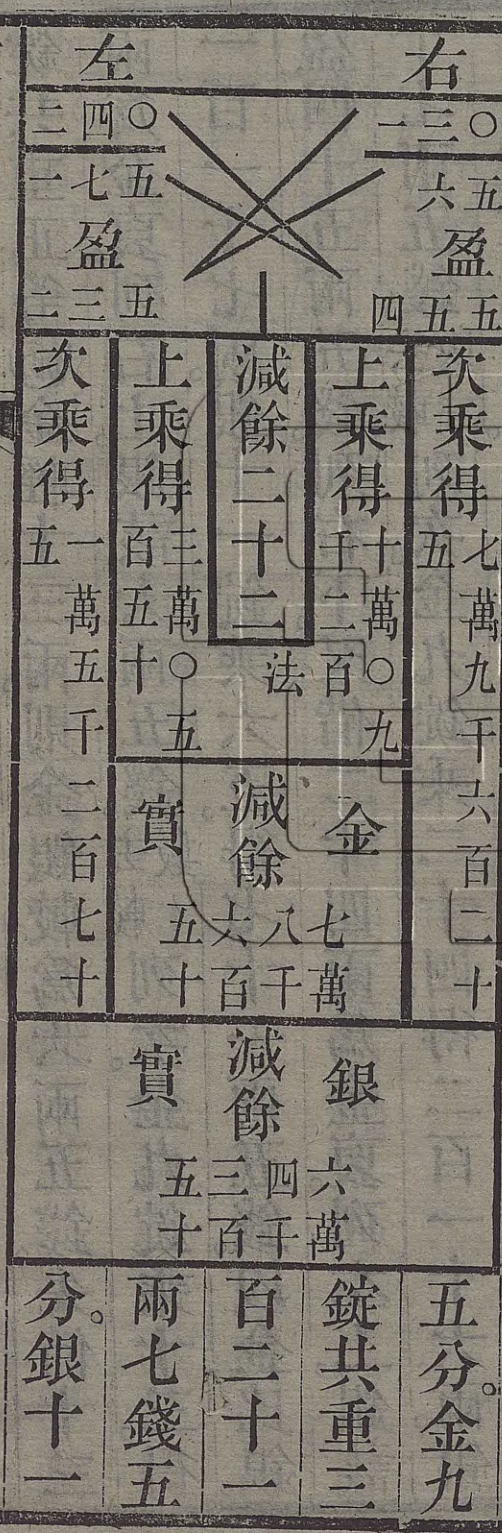 右
一三〇
六五
盈
四五五
左
二四〇
一七五
盈
二三五
次乘得七萬九千六百二十五
上乘得十萬〇九千二百
減餘二十二
法
上乘得三萬〇五百五十
次乘得一萬五千二百七十五
金
減餘
實
七萬八千六百五十
銀
減餘
實
六萬四千三百五十
五分。金九
錠共重三
百二十一
兩七錢五
分。銀十一